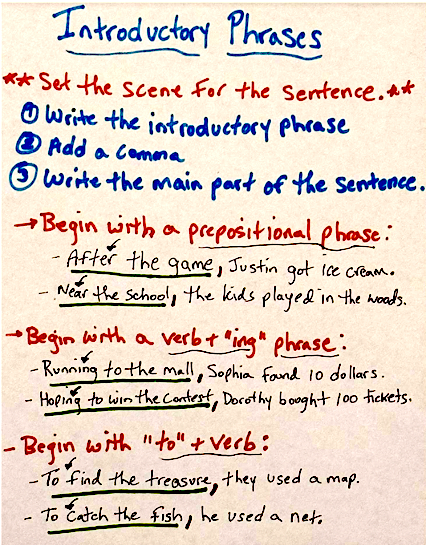 Introductory Phrases
** Set the scene for the sentence. **
① Write the introductory phrase
② Add a comma
③ Write the main part of the sentence.
→ Begin with a prepositional phrase:
- After the game, Justin got ice cream.
- Near the school, the kids played in the woods.
→ Begin with a verb + "ing" phrase:
- Running to the mall, Sophia found 10 dollars.
- Hoping to win the contest, Dorothy bought 100 tickets.
- Begin with "to" + verb:
- To find the treasure, they used a map.
- To catch the fish, he used a net.